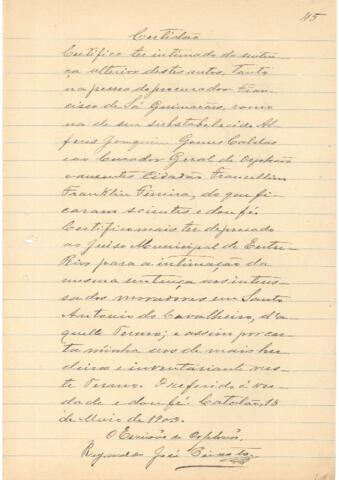 45
Certidão
Certifico ter intimado da senten-
ça ulterior destes autos, tanto
na pessoa do procurador Fran-
cisco de Sá Guimarães, como
na de seu substabelecido Al-
feres Joaquim Gomes Caldas
e ao Curador Geral de Orphãos
e ausentes Cidadão Francellino
Franklin Ferreira, do que fi-
caram scientes e dou fé.
Certifico mais ter deprecado
ao Juiso Municipal de Entre
Rios para a intimação da
mesma sentença aos interes-
sados moradores em Santo
Antonio do Cavalheiro, d'a-
quelle Termo; e assim por car-
ta minha aos de mais her-
deiros e inventariante nes-
te Termo. O referido é ver-
dade e dou fé. Catalão, 18
de Maio de 1903.
O Escrivão de Orphãos,
José